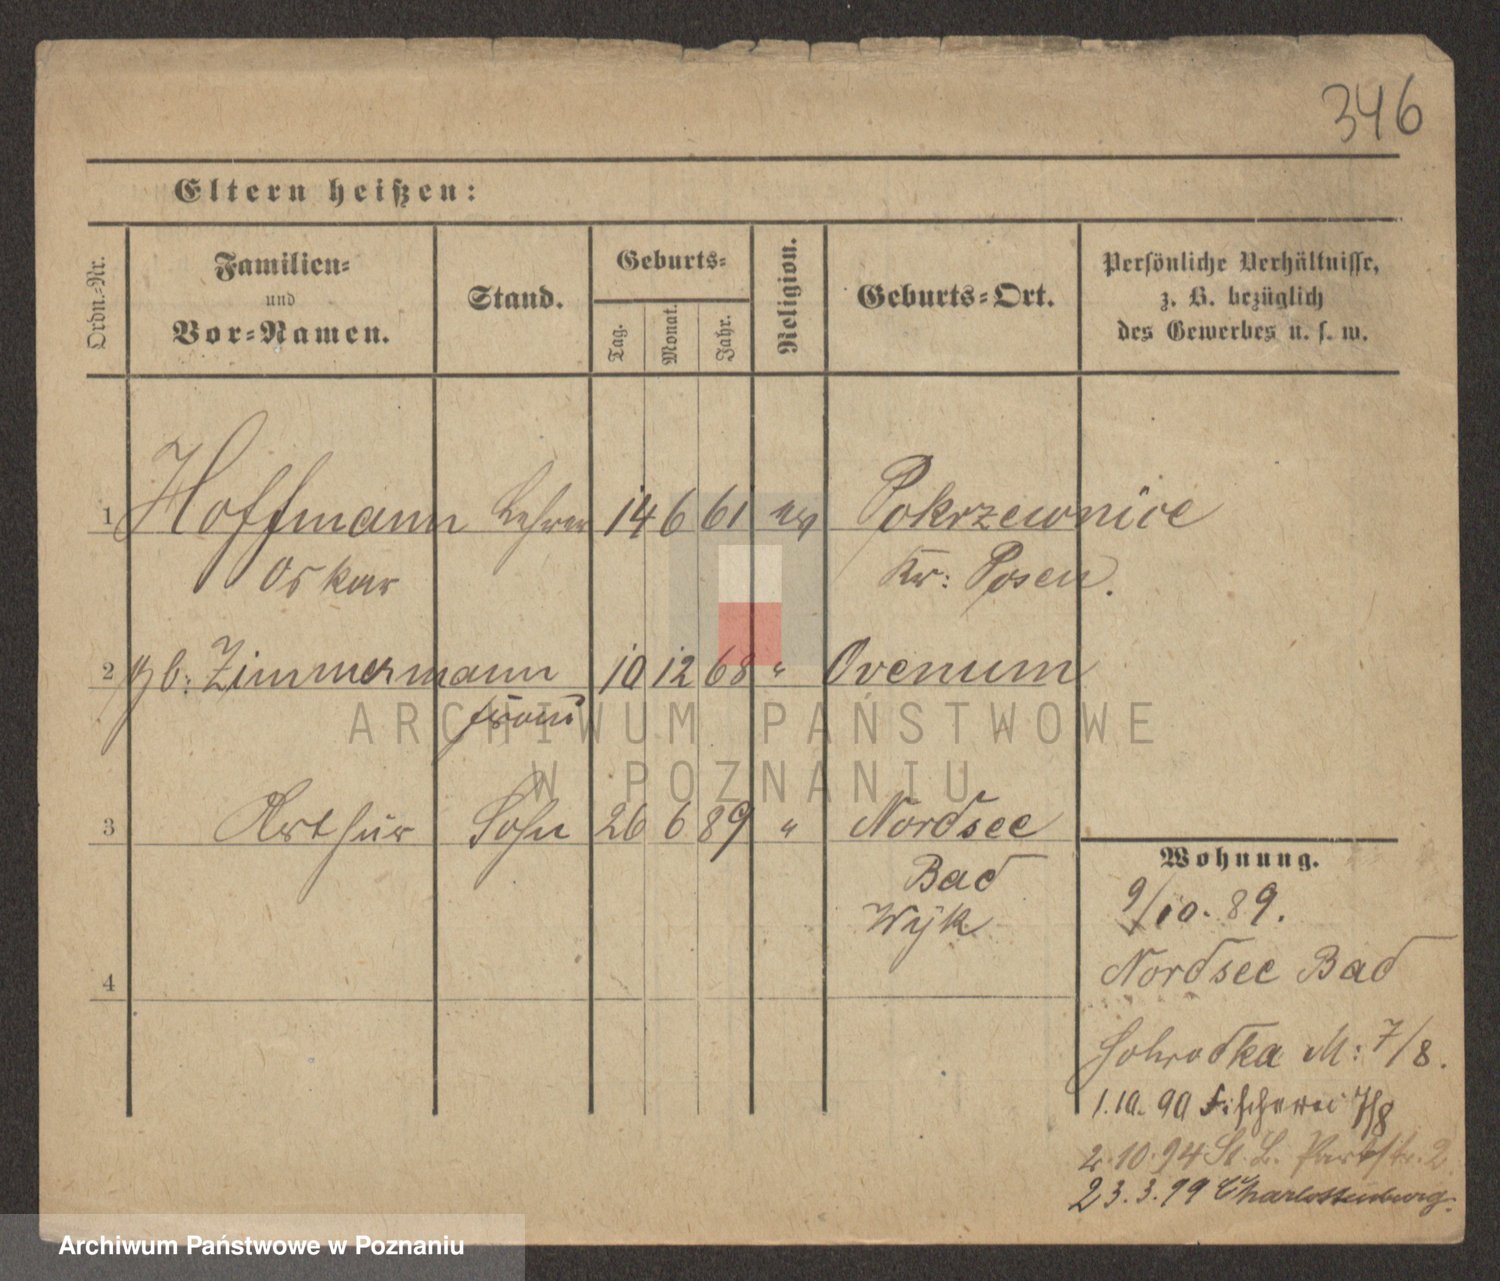 346
Eltern heißen:
Ordn.-Nr.
Familien-
und
Vor-Namen.
Stand.
Geburts-
Tag.
Monat.
Jahr.
Religion.
Geburts-Ort.
Persönliche Verhältnisse,
z. B. bezüglich
des Gewerbes u. s. w.
1 Hoffmann Lehrer 14 6 61 ev Pokrzewnice
Oskar Kr: Posen.
2 gb: Zimmermann 10 12 68 " Ovenum
3 Arthur Sohn 26 6 89 " Nordsee
Bad
Wyk
4
Wohnung.
9/10. 89.
Nordsee Bad
Schrodka M: 7/8.
1.10. 90 Fischerei 7/8
2.10.94 St. L. 2
23.3.99 Charlottenburg.
ARCHIWUM PAŃSTWOWE
W POZNANIU
Archiwum Państwowe w Poznaniu